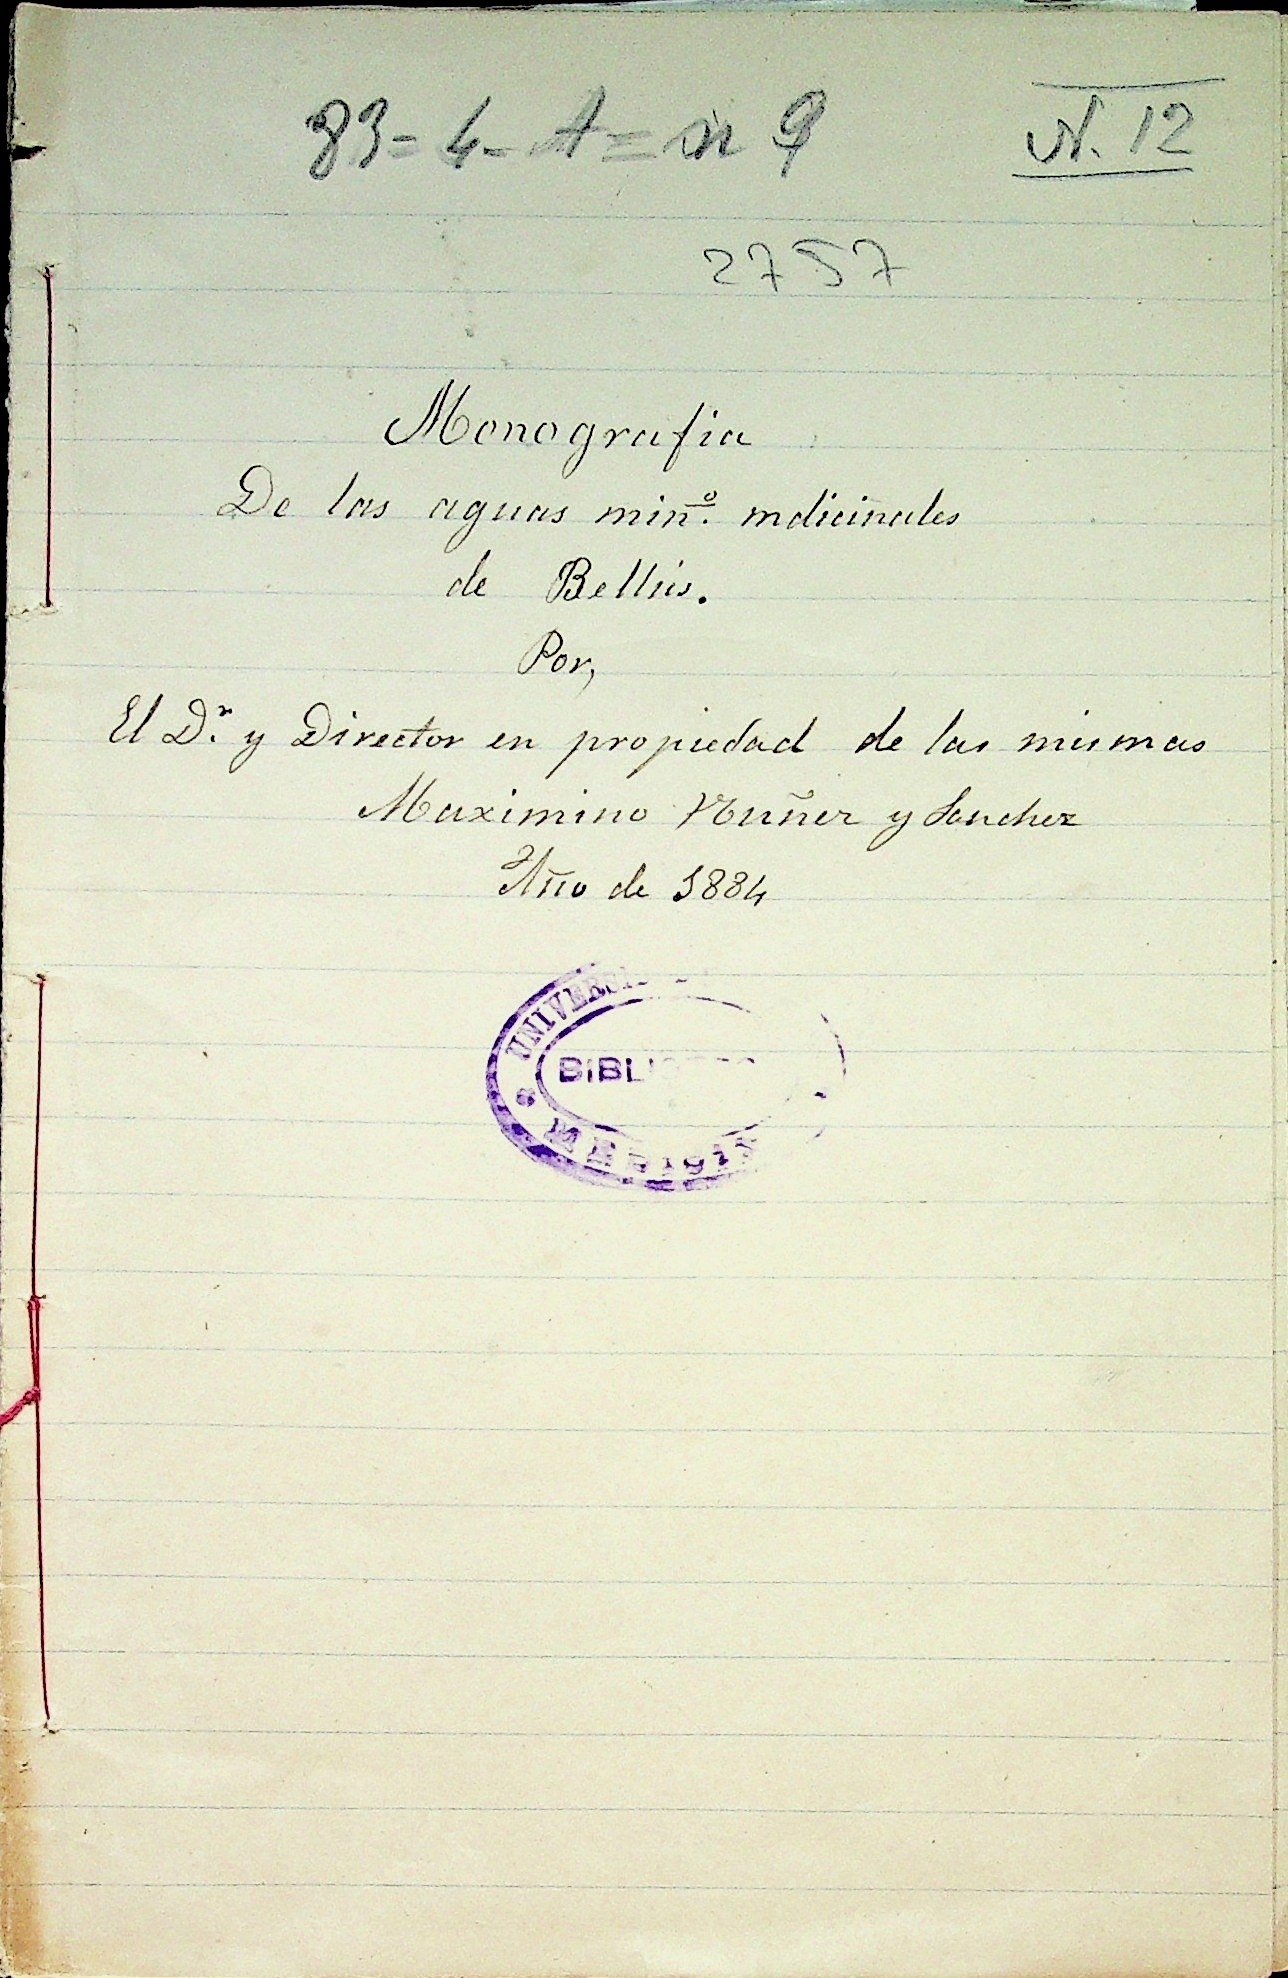 83-4-A=n 9
N. 12
2757
Monografia
De las aguas minº. mdicinales
de Bellús.
Por,
El Dr. y Director en propiedad de las mismas
Maximino Nuñez y Sanchez
Año de 1884
UNIVERSI
BIBLI
MEDICIN